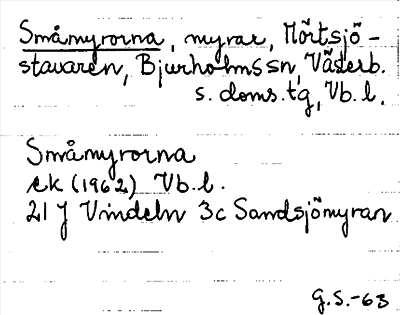 Småmyrorna, myrar, Mörtsjö-
stavaren, Bjurholms sn, Västerb.
s. doms.tg, Vb.l.
Småmyrorna
ek (1962) Vb.l.
21 J Vindeln 3c Sandsjömyran
G.S.-63